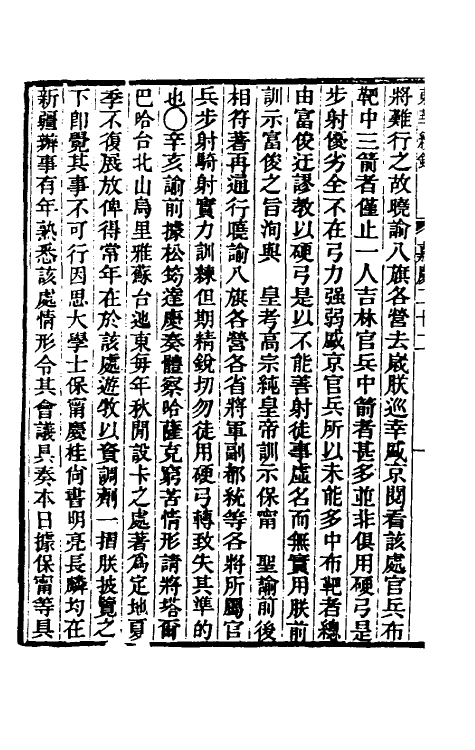 將難行之故曉諭八旗各營去歲朕巡幸盛京閱看該處官兵布
靶中三箭者僅止一人吉林官兵中箭者甚多並非俱用硬弓是
步射優劣全不在弓力强弱盛京官兵所以未能多中布靶者總
由富俊迂謬教以硬弓是以不能善射徒事虛名而無實用朕前
訓示富俊之旨洵與　皇考高宗純皇帝訓示保甯　聖諭前後
相符著再通行曉諭八旗各營各省將軍副都統等各將所屬官
兵步射騎射實力訓練但期精銳切勿徒用硬弓轉致失其準的
也〇辛亥諭前據松筠達慶奏體察哈薩克窮苦情形請將塔爾
巴哈台北山烏里雅蘇台迤東每年秋閒設卡之處著爲定地夏
季不復展放俾得常年在於該處遊牧以資調劑一摺朕披覽之
下卽覺其事不可行因思大學士保甯慶桂尙書明亮長麟均在
新疆辦事有年熟悉該處情形令其會議具奏本日據保甯等具